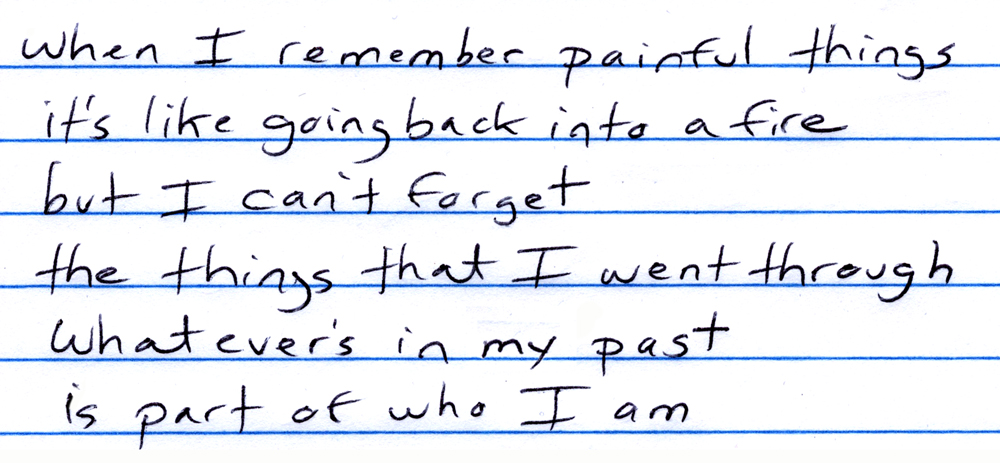 when I remember painful things
it's like going back into a fire
but I can't forget
the things that I went through
Whatever's in my past
is part of who I am